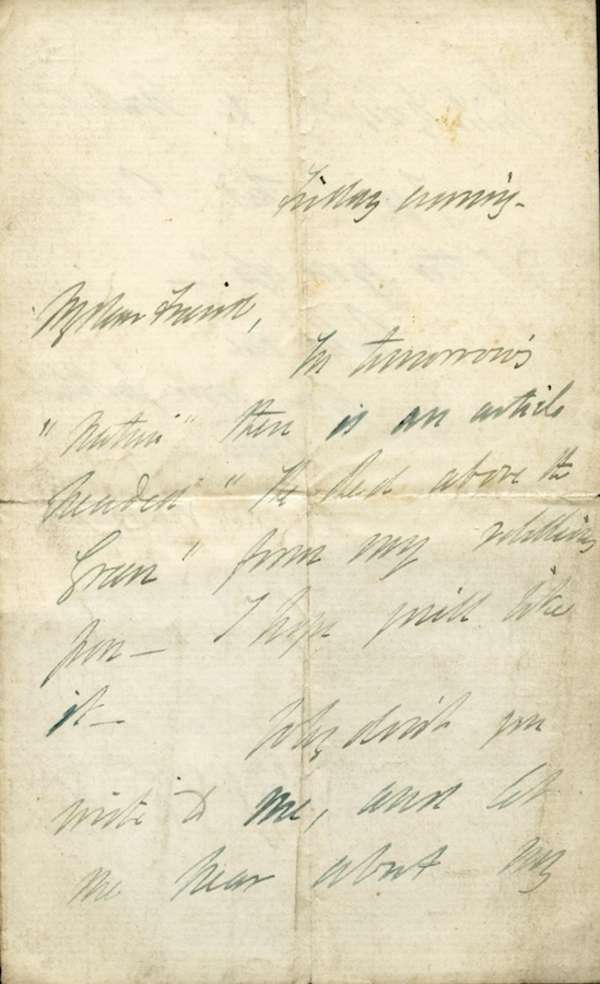 Friday evening -
My dear Friend,
In tomorrow's
"Nation" there is an article
headed "The Red above the
Green" from my rebellious
pen - I hope you'll like
it -
Why don't you
write to me, and let
me hear about my